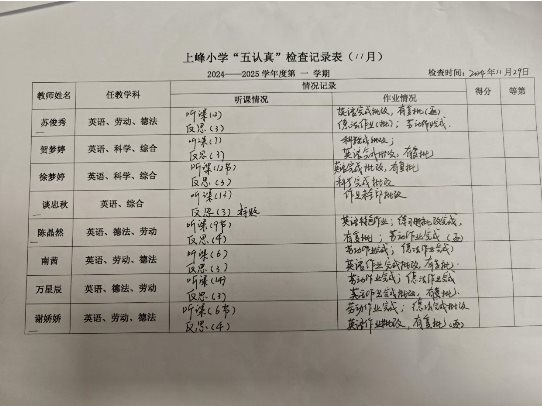 上峰小学“五认真”检查记录表（11月）
2024——2025学年度第 一 学期 检查时间：2024年11月29日
教师姓名 任教学科 情况记录 得分 等第
听课情况 作业情况
苏俊秀 英语、劳动、德法
听课(12) 英语完成批改，有复批(画)
反思(3) 德法作业(批)；劳动作业完成.
贺梦婷 英语、科学、综合
听课(7) 科学完成批改；
反思(3) 英语完成批改，有复批
徐梦婷 英语、科学、综合
听课(12节) 英语完成批改，有复批
反思(3) 科学完成批改
谈忠秋 英语、综合
听课(13) 作业全部批改
反思(3)
陈晶然 英语、德法、劳动
听课(9节) 英语特色作业；练习册批改完成，
反思(4) 有复批；劳动作业完成(画)
南茜 英语、德法、劳动
听课(6) 劳动作业完成；德法作业完成
反思(3) 英语作业完成批改，有复批.
万星辰 英语、德法、劳动
听课 劳动作业完成；德法作业完成
反思(3) 英语作业完成批改，有复批.
谢娇娇 英语、劳动、德法
听课(6节) 劳动作业完成；德法完成批改
反思(4) 英语作业批改，有复批(画)